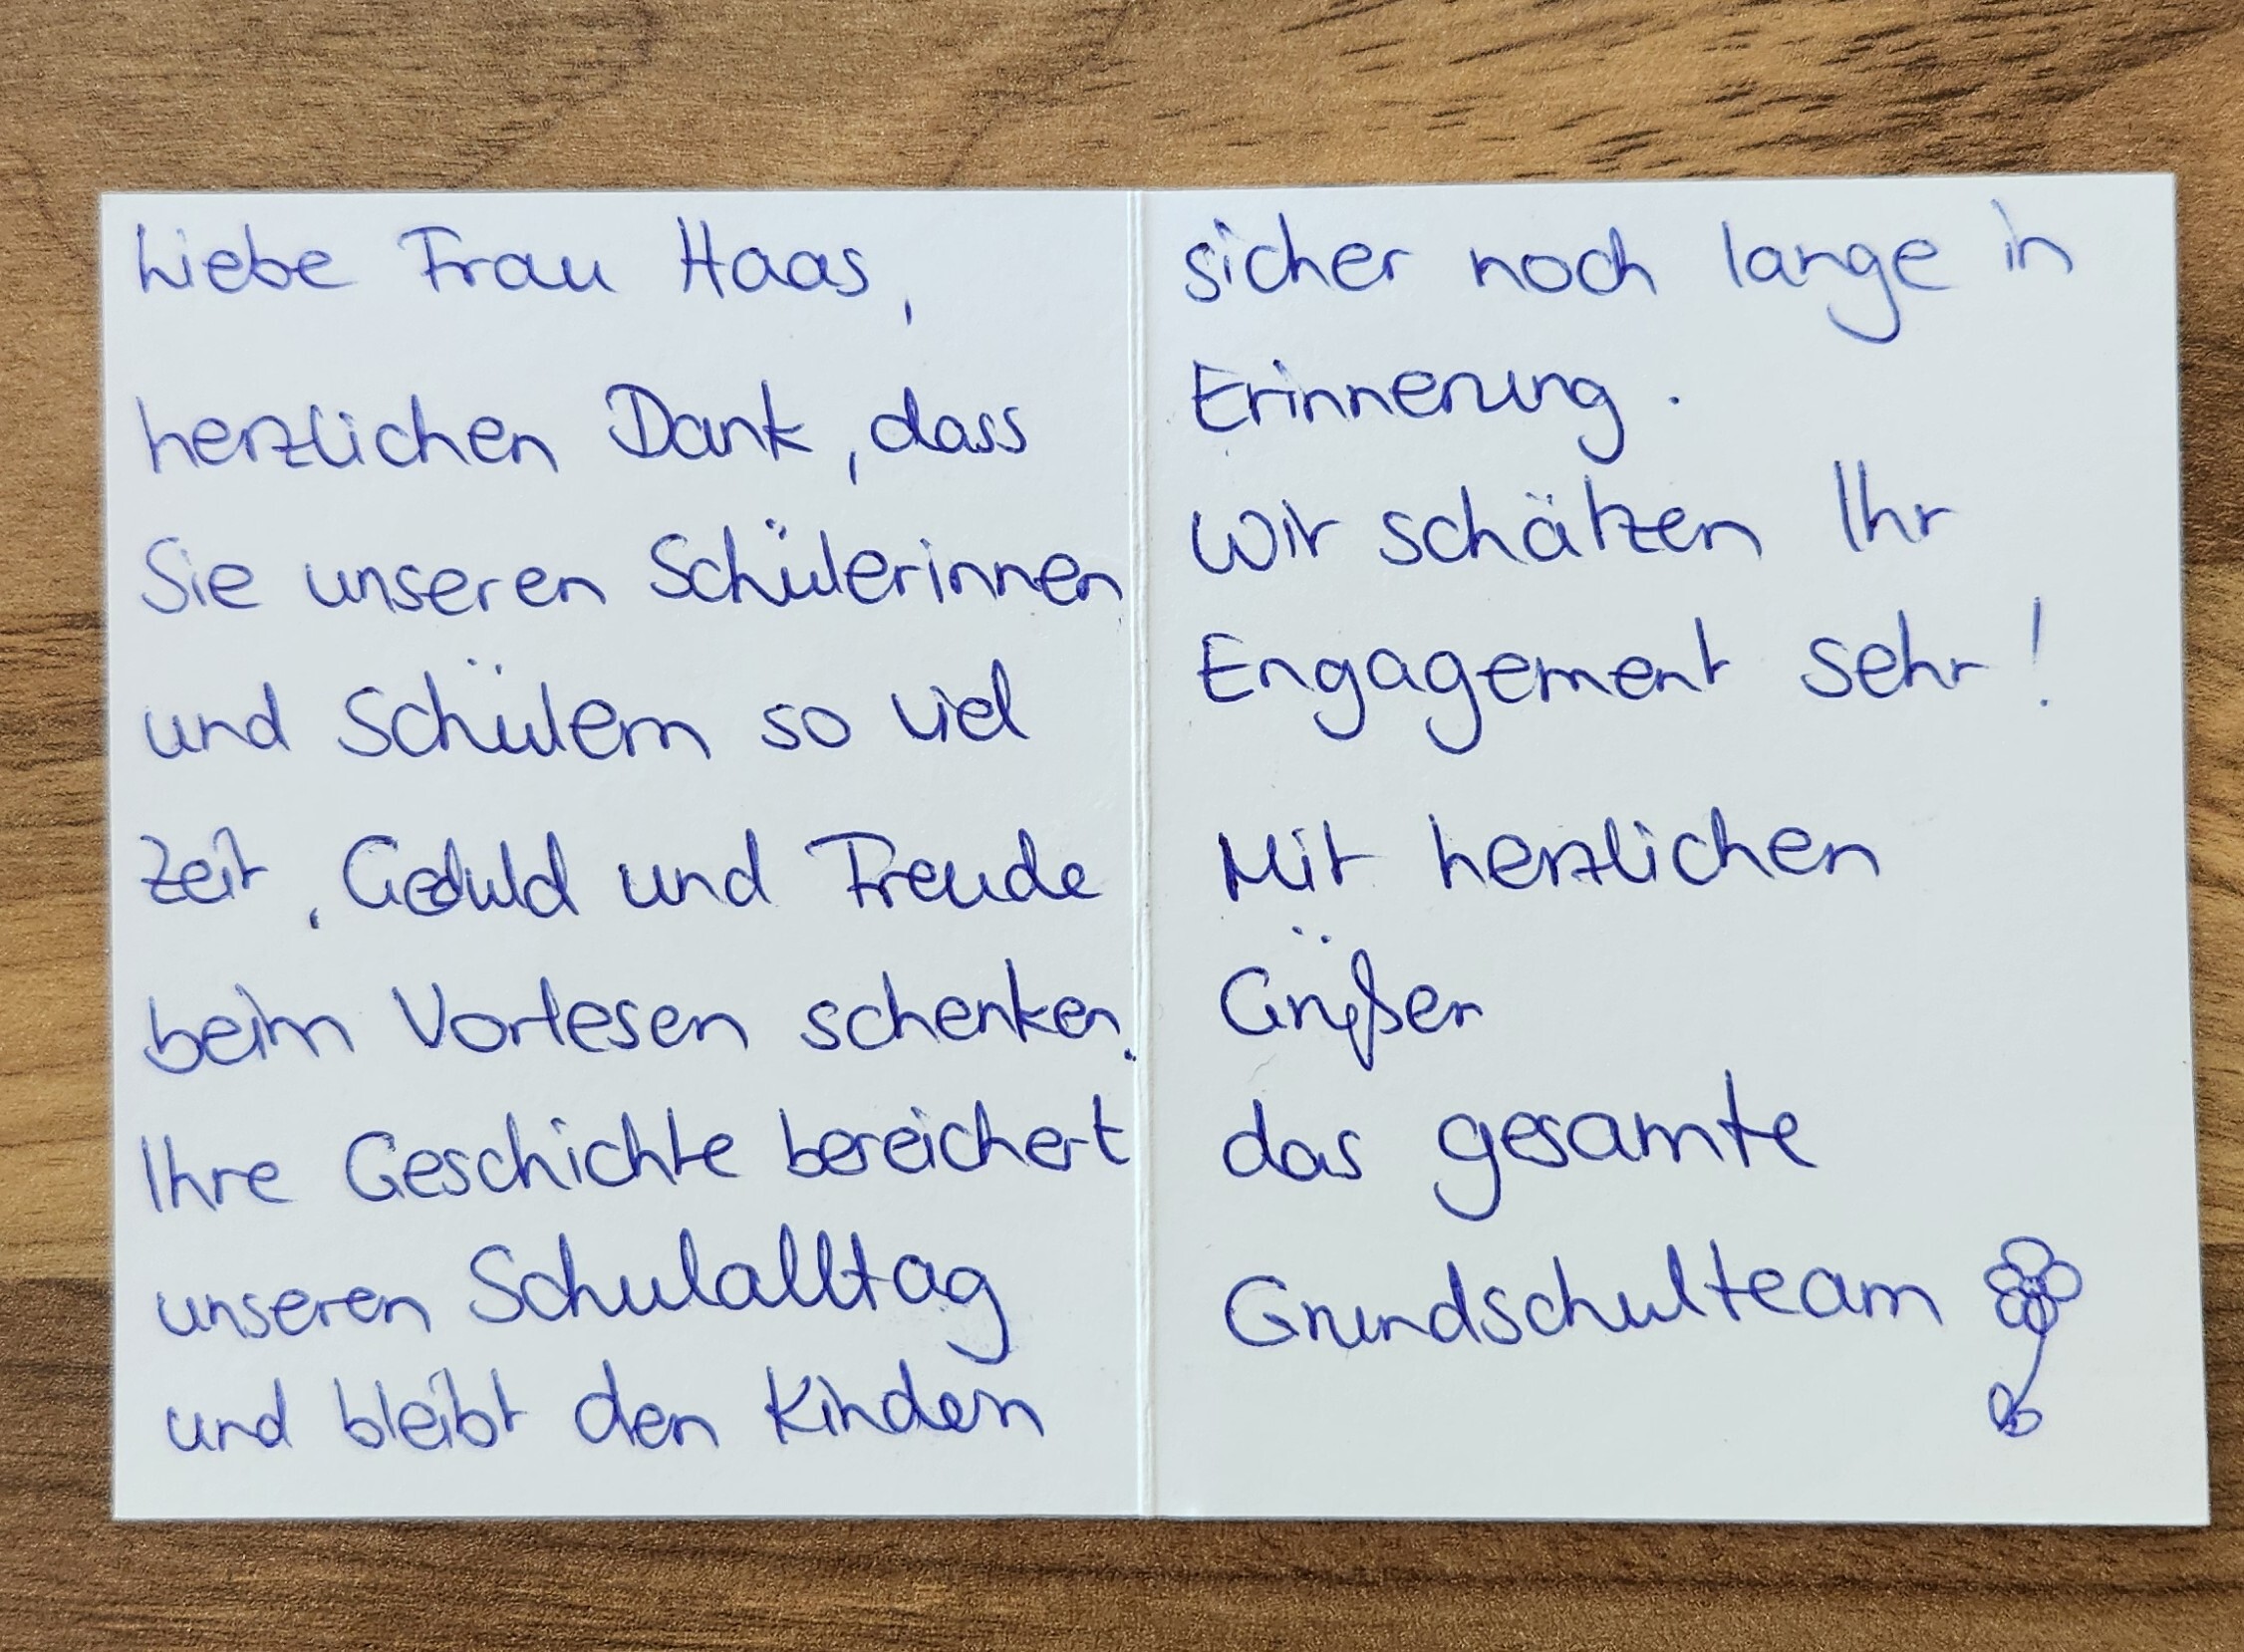 Liebe Frau Haas,
herzlichen Dank, dass
Sie unseren Schülerinnen
und Schülern so viel
Zeit, Geduld und Freude
beim Vorlesen schenken.
Ihre Geschichte bereichert
unseren Schulalltag
und bleibt den Kindern
sicher noch lange in
Erinnerung.
Wir schätzen Ihr
Engagement sehr!
Mit herzlichen
Grüßen
das gesamte
Grundschulteam